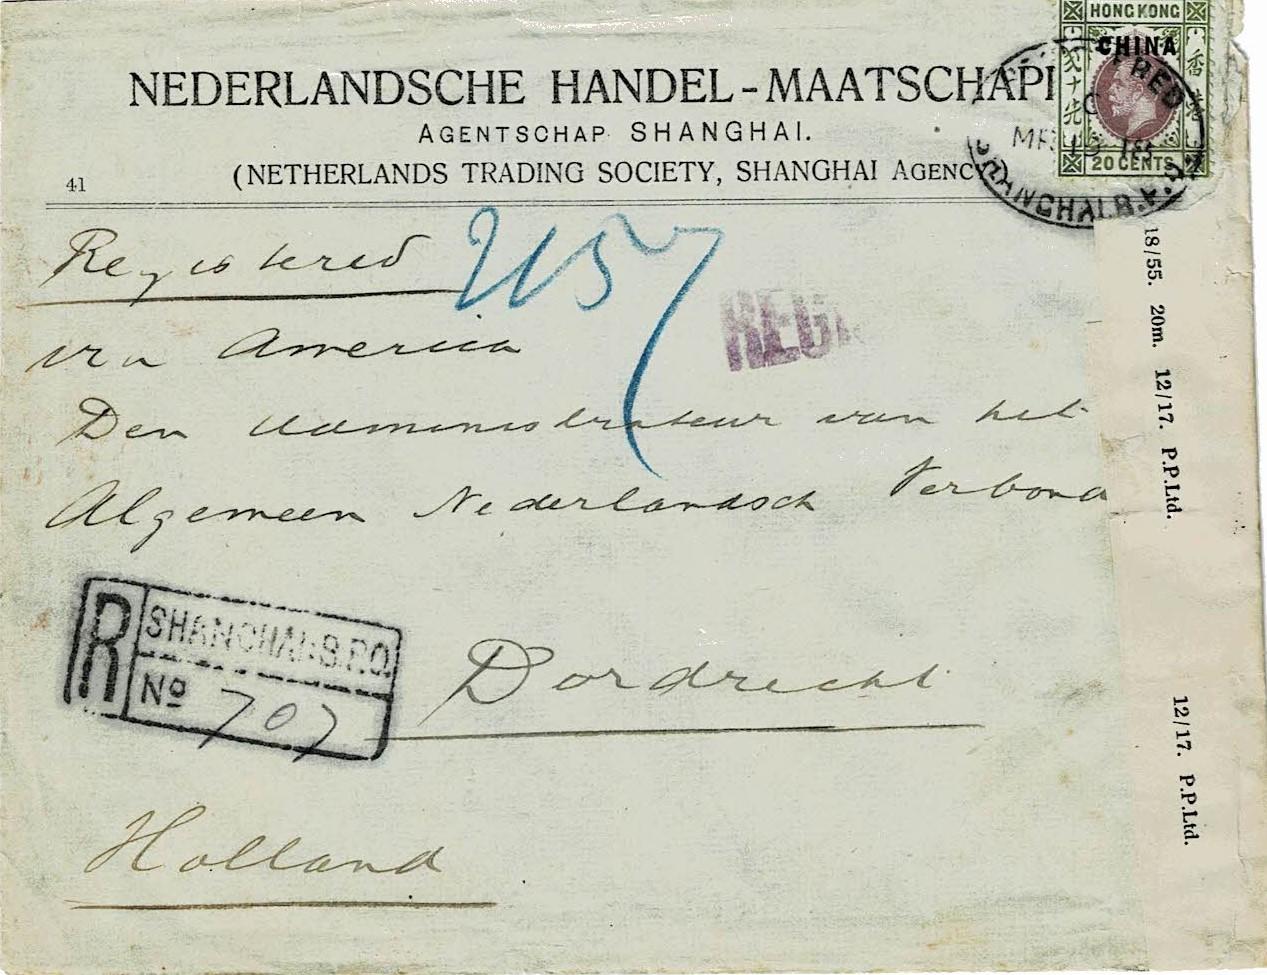 HONG KONG
CHINA
20 CENTS
NEDERLANDSCHE HANDEL-MAATSCHAPI
AGENTSCHAP SHANGHAI.
(NETHERLANDS TRADING SOCIETY, SHANGHAI AGENCY
41
SHANGHAI B.P.O.
Registered
REG
via America
Den Administrateur van het
Algemeen Nederlandsch Verbond
R
SHANGHAI B.P.O.
No 707
Dordrecht
Holland
18/55. 20m. 12/17. P.P.Ltd.
12/17. P.P.Ltd.